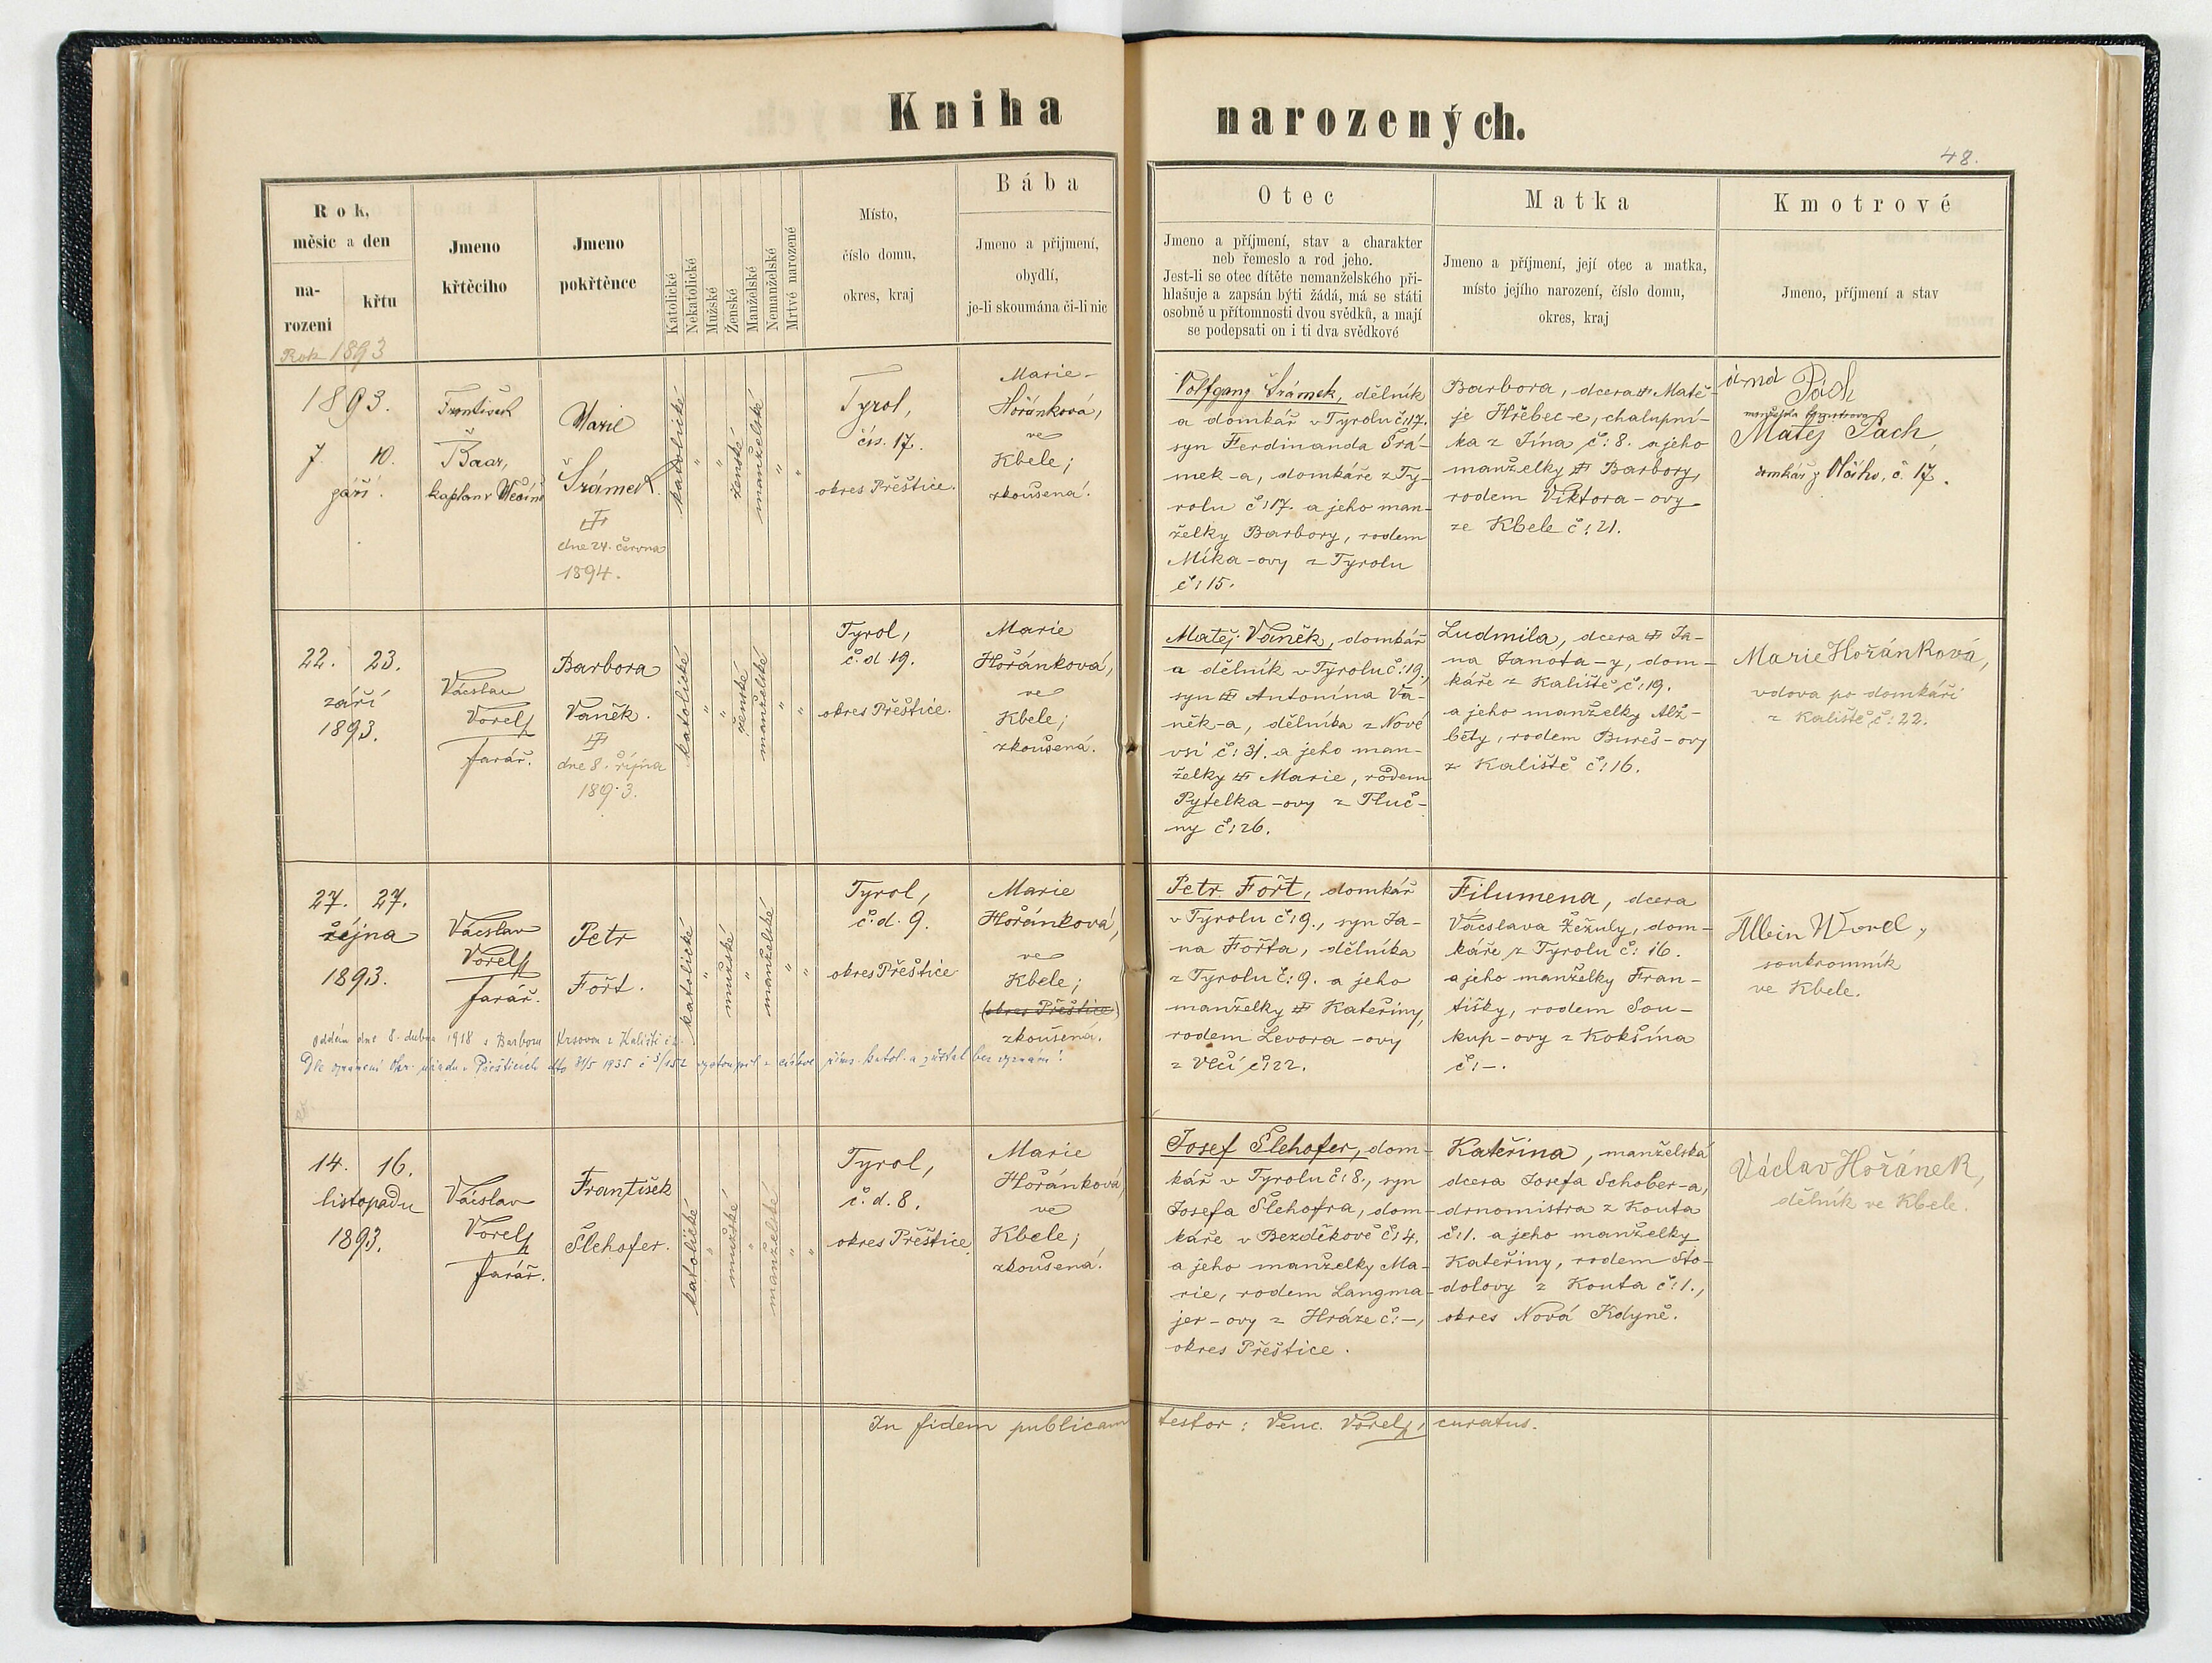 Kniha narozených.
48.
Rok,
měsíc a den
na-
rozeni
křtu
Jmeno
křtěcího
Jmeno
pokřtěnce
Katolické
Nekatolické
Mužské
Ženské
Manželské
Nemanželské
Mrtvé narozené
Místo,
číslo domu,
okres, kraj
Bába
Jmeno a přijmení,
obydlí,
je-li skoumána či-li nic
Otec
Jmeno a příjmení, stav a charakter
neb řemeslo a rod jeho.
Jest-li se otec dítěte nemanželského při-
hlašuje a zapsán býti žádá, má se státi
osobně u přítomnosti dvou svědků, a mají
se podepsati on i ti dva svědkové
Matka
Jmeno a příjmení, její otec a matka,
místo jejího narození, číslo domu,
okres, kraj
Kmotrové
Jmeno, příjmení a stav
Rok 1893
1893.
7. 10.
září.
František
Baar,
kaplan v
Marie
Šrámek.
dne 24. června
1894.
katolické
"
"
ženské
manželské
"
"
Tyrol,
čís. 17.
okres Přeštice.
Marie
Hořánková,
ve
Kbele;
zkoušená.
Volfgang Šrámek, dělník
a domkář v Tyrolu č: 17.
syn Ferdinanda Šrá-
mek-a, domkáře z Ty-
rolu č: 17. a jeho man-
želky Barbory, rodem
Míka-ovy z Tyrolu
č: 15.
Barbora, dcera Matě-
je Hřebec-e, chalupní-
ka z Jína č: 8. a jeho
manželky Barbory,
rodem Viktora-ovy
ze Kbele č: 21.
Pach
manželka
Matěj Pach,
domkář z č. 17.
22. 23.
září
1893.
Václav
Vorel
farář.
Barbora
Vaněk.
dne 8. října
1893.
katolické
"
"
ženské
manželské
"
"
Tyrol,
č. d 19.
okres Přeštice.
Marie
Hořánková,
ve
Kbele;
zkoušená.
Matěj Vaněk, domkář
a dělník v Tyrolu č: 19.,
syn Antonína Va-
něk-a, dělníka z Nové
vsi č: 31. a jeho man-
želky Marie, rodem
Pytelka-ovy z Tluč-
ny č: 26.
Ludmila, dcera Ja-
na Janota-y, dom-
káře z Kaliště, č: 19.
a jeho manželky Alž-
běty, rodem Bureš-ovy
z Kaliště č: 16.
Marie Hořánková,
vdova po domkáři
z Kaliště, č: 22.
27. 27.
října
1893.
Václav
Vorel
farář.
Petr
Fořt.
katolické
"
mužské
"
manželské
"
"
Tyrol,
č. d. 9.
okres Přeštice
Marie
Hořánková,
ve
Kbele;
(okres Přeštice)
zkoušená.
Petr Fořt, domkář
v Tyrolu č: 9., syn Ja-
na Fořta, dělníka
z Tyrolu č: 9. a jeho
manželky Kateřiny,
rodem Levora-ovy
z Vlčí č: 22.
Filumena, dcera
Václava Žežuly, dom-
káře z Tyrolu č: 16.
a jeho manželky Fran-
tišky, rodem Sou-
kup-ovy z Kokšína
č: -.
Albin Worel,
soukromník
ve Kbele.
oddán dne 8. dubna 1918 s Barborou Krsovou z Kaliště
Dle oznámení Okr. úřadu v Přešticích dto 31/5 1935 č vystoupil z církve řím. katol. a zůstal bez vyznání.
14. 16.
listopadu
1893.
Václav
Vorel
farář.
František
Šlehofer.
katolické
"
mužské
"
manželské
"
"
Tyrol,
č. d. 8.
okres Přeštice
Marie
Hořánková,
ve
Kbele;
zkoušená.
Josef Šlehofer, dom-
kář v Tyrolu č: 8., syn
Josefa Šlehofra, dom-
káře v Bezděkově č: 4.
a jeho manželky Ma-
rie, rodem Langma-
jer-ovy z Hráze č: -,
okres Přeštice.
Kateřina, manželská
dcera Josefa Schober-a,
drnomistra z Kouta
č: 1. a jeho manželky
Kateřiny, rodem Sto-
dolovy z Kouta č: 1.,
okres Nová Kdyně.
Václav Hořánek,
dělník ve Kbele.
In fidem publicam testor: Venc. Vorel, curatus.